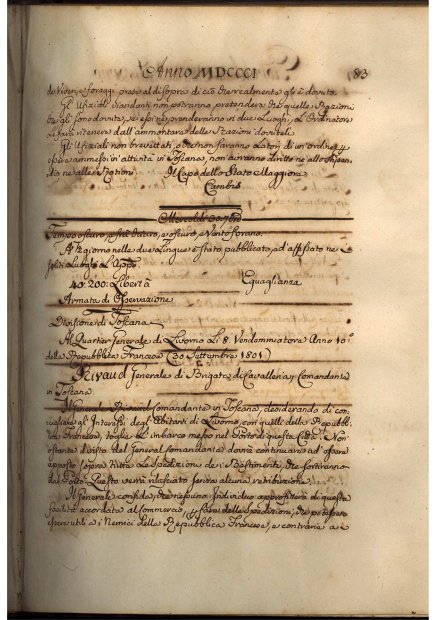 Anno MDCCCI 83
da Viveri, e foraggi presa al di sopra di ciò che realmente gli è dovuto.
Gli Ufiziali Viandanti non potranno pretendere che quelle Razioni
che gli sono dovute, se essi ne prenderanno in due Luoghi, l'Ordinatore
farà ritenere dall'ammontare delle Razioni dovuteli.
Gli Ufiziali non brevettati, o che non saranno Latori di un'ordine p
essere ammessi in attività in Toscana, non avranno diritto ne allo stipen-
dio ne alle Razioni. Il Capo dello Stato Maggiore
Cambis
Mercoledì 30
Tempo oscuro, e oscuro, e Vento forano.
A giorno nelle due Lingue è stato pubblicato, ed affissato ne
soliti Luoghi L'App.
40: 200: Libertà Eguaglianza
Armata di Osservazione
Divisione di Toscana
Al Quartier Generale di Livorno Li 8. Vendemmiatora Anno 10.
della Repubblica Francese (30 Settembre 1801)
Rivaud Generale di Brigata di Cavalleria, Comandante
in Toscana
Il Generale Rivaud Comandante in Toscana, desiderando di con-
ciliare gli Interessi degli Abitanti di Livorno, con quelli della Repubbli-
ca Francese, toglie l'imbarco messo nel Porto di questa Città. Non
ostante il visto del General Comandante dovrà continuare ad essere
apposto sopra tutte le Spedizioni dei Bastimenti, che sortiranno
dal Porto. Questo verrà rilasciato senza alcuna retribuzione.
Il Generale confida, che nessuno Individuo approfitterà di questa
facilità accordata al commercio, p farsi delle Spedizioni, che potessero
essere utili a i Nemici della Repubblica Francese, e contrarie a